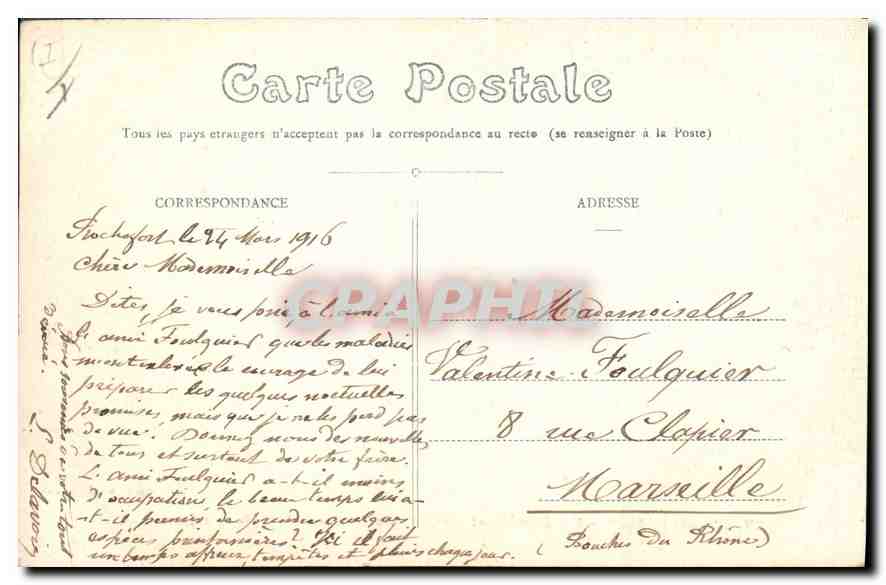 (I)
4
Carte Postale
Tous les pays etrangers n'acceptent pas la correspondance au recto (se renseigner à la Poste)
CORRESPONDANCE
ADRESSE
Rochefort le 24 Mars 1916
Chère Mademoiselle
Dites, je vous prie, à l'ami
L'ami Foulquier que les maladies
m'ont enlevé le courage de lui
préparer les quelques noctuelles
promises mais que je ne les perd pas
de vue. Donnez nous des nouvelles
de tous et surtout de votre frère.
L'ami Foulquier a-t-il moins
d'occupation, le beau temps lui a-
t-il permis de prendre quelques
espèces printanières? Ici il fait
un temps affreux, tempêtes et pluies chaque jour.
Bons souvenirs de votre tout
dévoué.
CPAPHIL
Mademoiselle
Valentine Foulquier
8 rue Clapier
Marseille
(Bouches du Rhône)